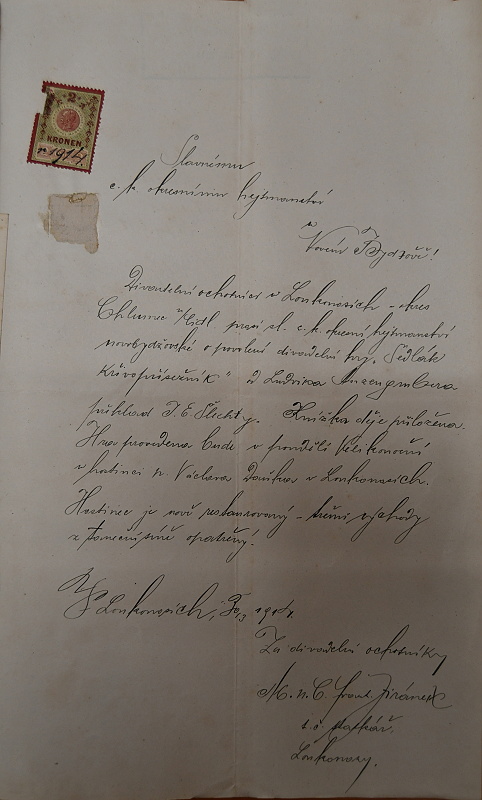 2
KRONEN
1914.
Slavnému
c. k. okresnímu hejtmanství
v
Novém Bydžově!
Divadelní ochotníci v Loukonosích - okres
Chlumec n/Cidl. prosí sl. c. k. okresní hejtmanství
novobydžovské o povolení divadelní hry „Sedlák
křivopřísežník" od Ludvíka Anzengrubera
překlad J. E. Šlechty. Knížka děje přiložena.
Hra provedena bude v pondělí Velikonoční
v hostinci p. Václava Douška v Loukonosích.
Hostinec je nově restaurovaný - třemi východy
z taneční síně opatřený.
V Loukonosích, 1914.
Za divadelní ochotníky
Frant. Jiránek
t. č. pokladník.
Loukonosy.